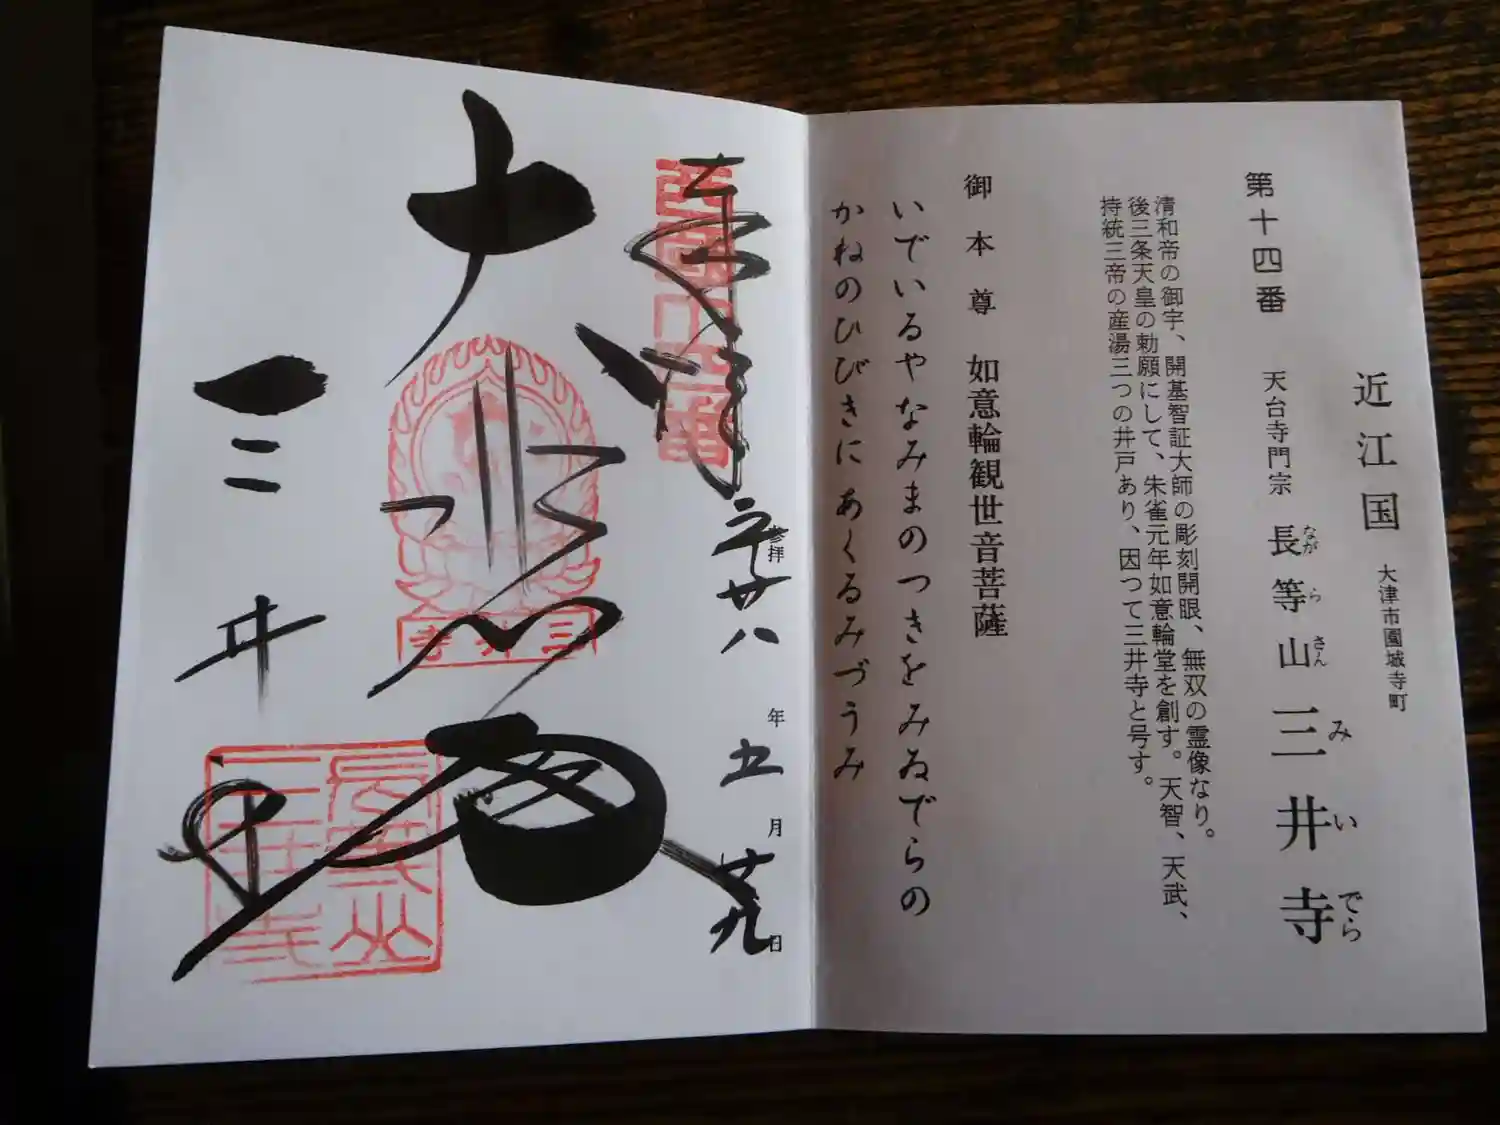 近江国 大津市園城寺町
第十四番 天台寺門宗 長等山三井寺
ながらさんみいでら
清和帝の御宇、開基智証大師の彫刻開眼、無双の霊像なり。
後三条天皇の勅願にして、朱雀元年如意輪堂を創す。天智、天武、
持統三帝の産湯三つの井戸あり、因つて三井寺と号す。
御本尊 如意輪観世音菩薩
いでいるやなみまのつきをみゐでらの
かねのひびきにあくるみづうみ
奉拝
西国十四番
参拝
廿八年五月廿九日
大悲
三井寺
三井寺
長等山
三井寺